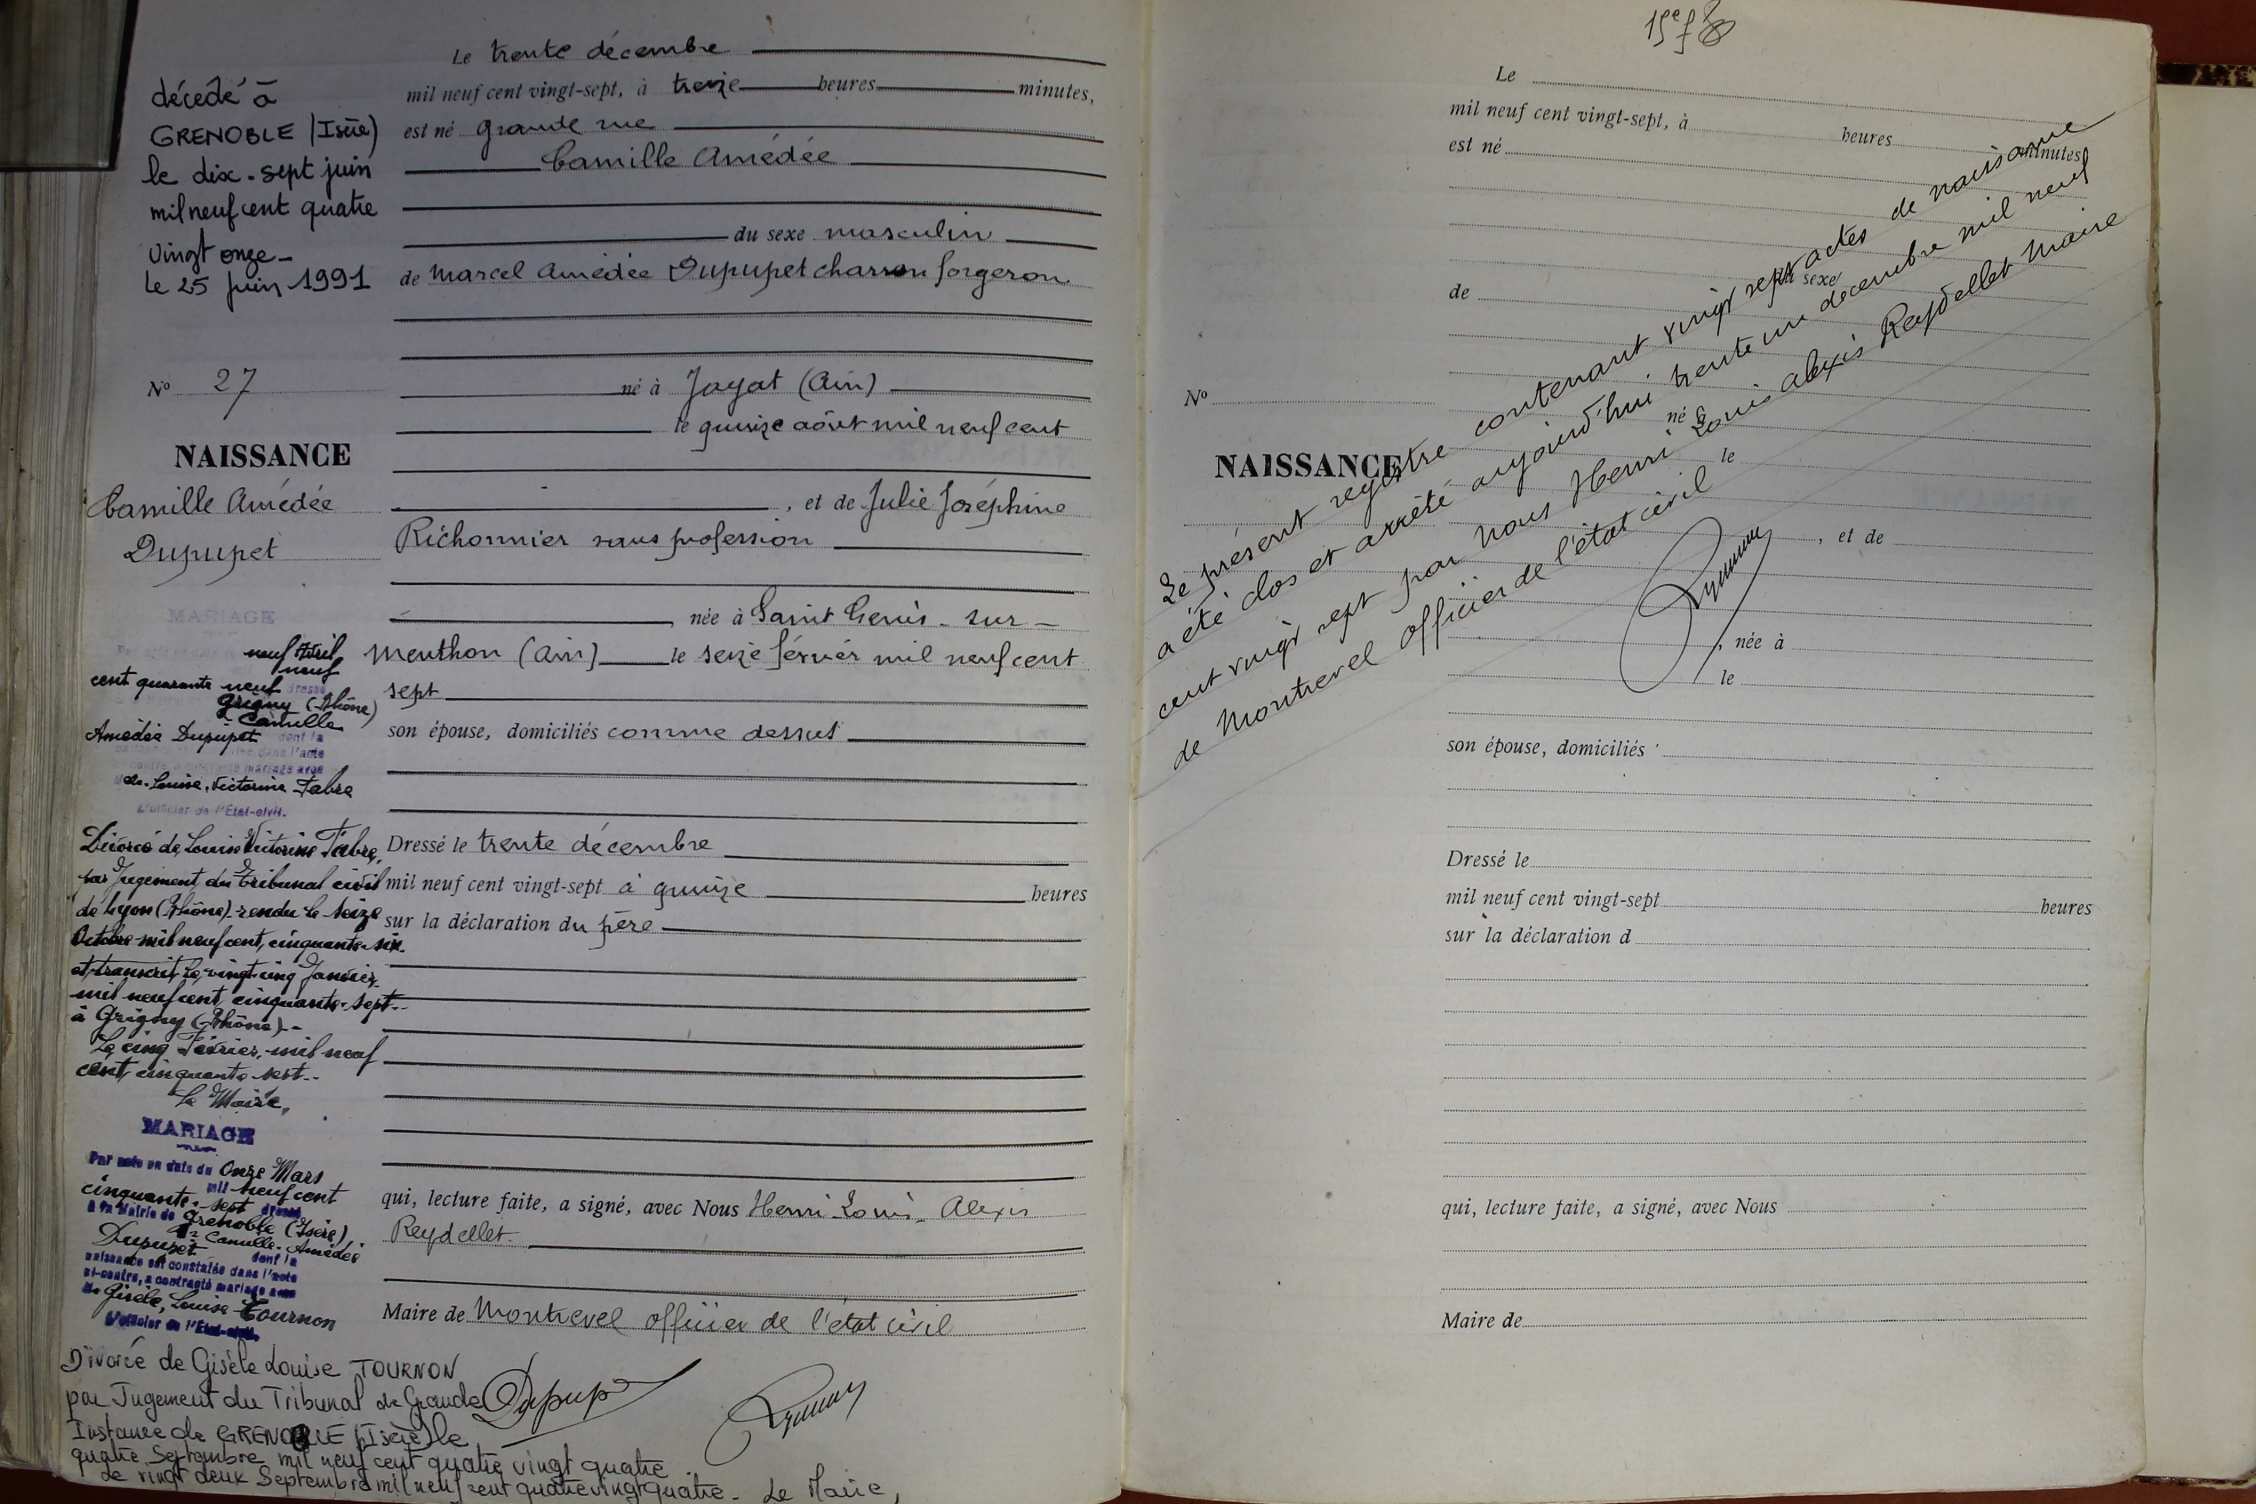 Le trente décembre
mil neuf cent vingt-sept, à treize heures minutes,
est né grande rue
Camille Amédée
du sexe masculin
de Marcel Amédée Dupupet charron forgeron
né à Jayat (Ain)
le quinze août mil neuf cent
, et de Julie Joséphine
Richonnier sans profession
née à Saint Genis-sur-
Menthon (Ain) le seize février mil neuf cent
sept
son épouse, domiciliés comme dessus
Dressé le trente décembre
mil neuf cent vingt-sept à quinze heures
sur la déclaration du père
qui, lecture faite, a signé, avec Nous Henri Louis Alexis
Reydellet
Maire de Montrevel officier de l'état civil
Dupup
décédé à
GRENOBLE (Isère)
le dix-sept juin
mil neuf cent quatre
vingt onze-
le 25 juin 1991
No 27
NAISSANCE
Camille Amédée
Dupupet
MARIAGE
neuf Avril
neuf
cent quarante neuf dressé
Grigny (Rhône)
Camille
Amédée Dupupet dont la
dans l'acte
mariage avec
Louise, Victorine Fabre
L'officier de l'Etat-civil.
Divorcé de Louise Victorine Fabre,
par Jugement du Tribunal civil
de Lyon (Rhône) rendu le seize
Octobre mil neuf cent, cinquante-six
et transcrit le vingt cinq Janvier
mil neuf cent cinquante-sept-
à Grigny (Rhône)-
Le cinq Février, mil neuf
cent cinquante-sept-
Le Maire,
MARIAGE
Par acte en date du Onze Mars
mil neuf cent
cinquante-sept dressé
à la Mairie de Grenoble (Isère)
Camille-Amédée
Dupupet dont la
naissance est constatée dans l'acte
ci-contre, a contracté mariage avec
Gisèle, Louise Tournon
L'officier de l'Etat-civil.
Divorcé de Gisèle Louise TOURNON
par Jugement du Tribunal de Grande
Instance de GRENOBLE (Isère) le
quatre Septembre mil neuf cent quatre vingt quatre
Le vingt deux Septembre mil neuf cent quatre vingt quatre- Le Maire,
15e f
Le
mil neuf cent vingt-sept, à heures minutes
est né
du sexe
de
No
né à
NAISSANCE
le
, et de
, née à
le
son épouse, domiciliés
Dressé le
mil neuf cent vingt-sept heures
sur la déclaration d
qui, lecture faite, a signé, avec Nous
Maire de
Le présent registre contenant vingt sept actes de naissance
a été clos et arrêté aujourd'hui trente un décembre mil neuf
cent vingt sept par nous Henri Louis Alexis Reydellet Maire
de Montrevel officier de l'état civil